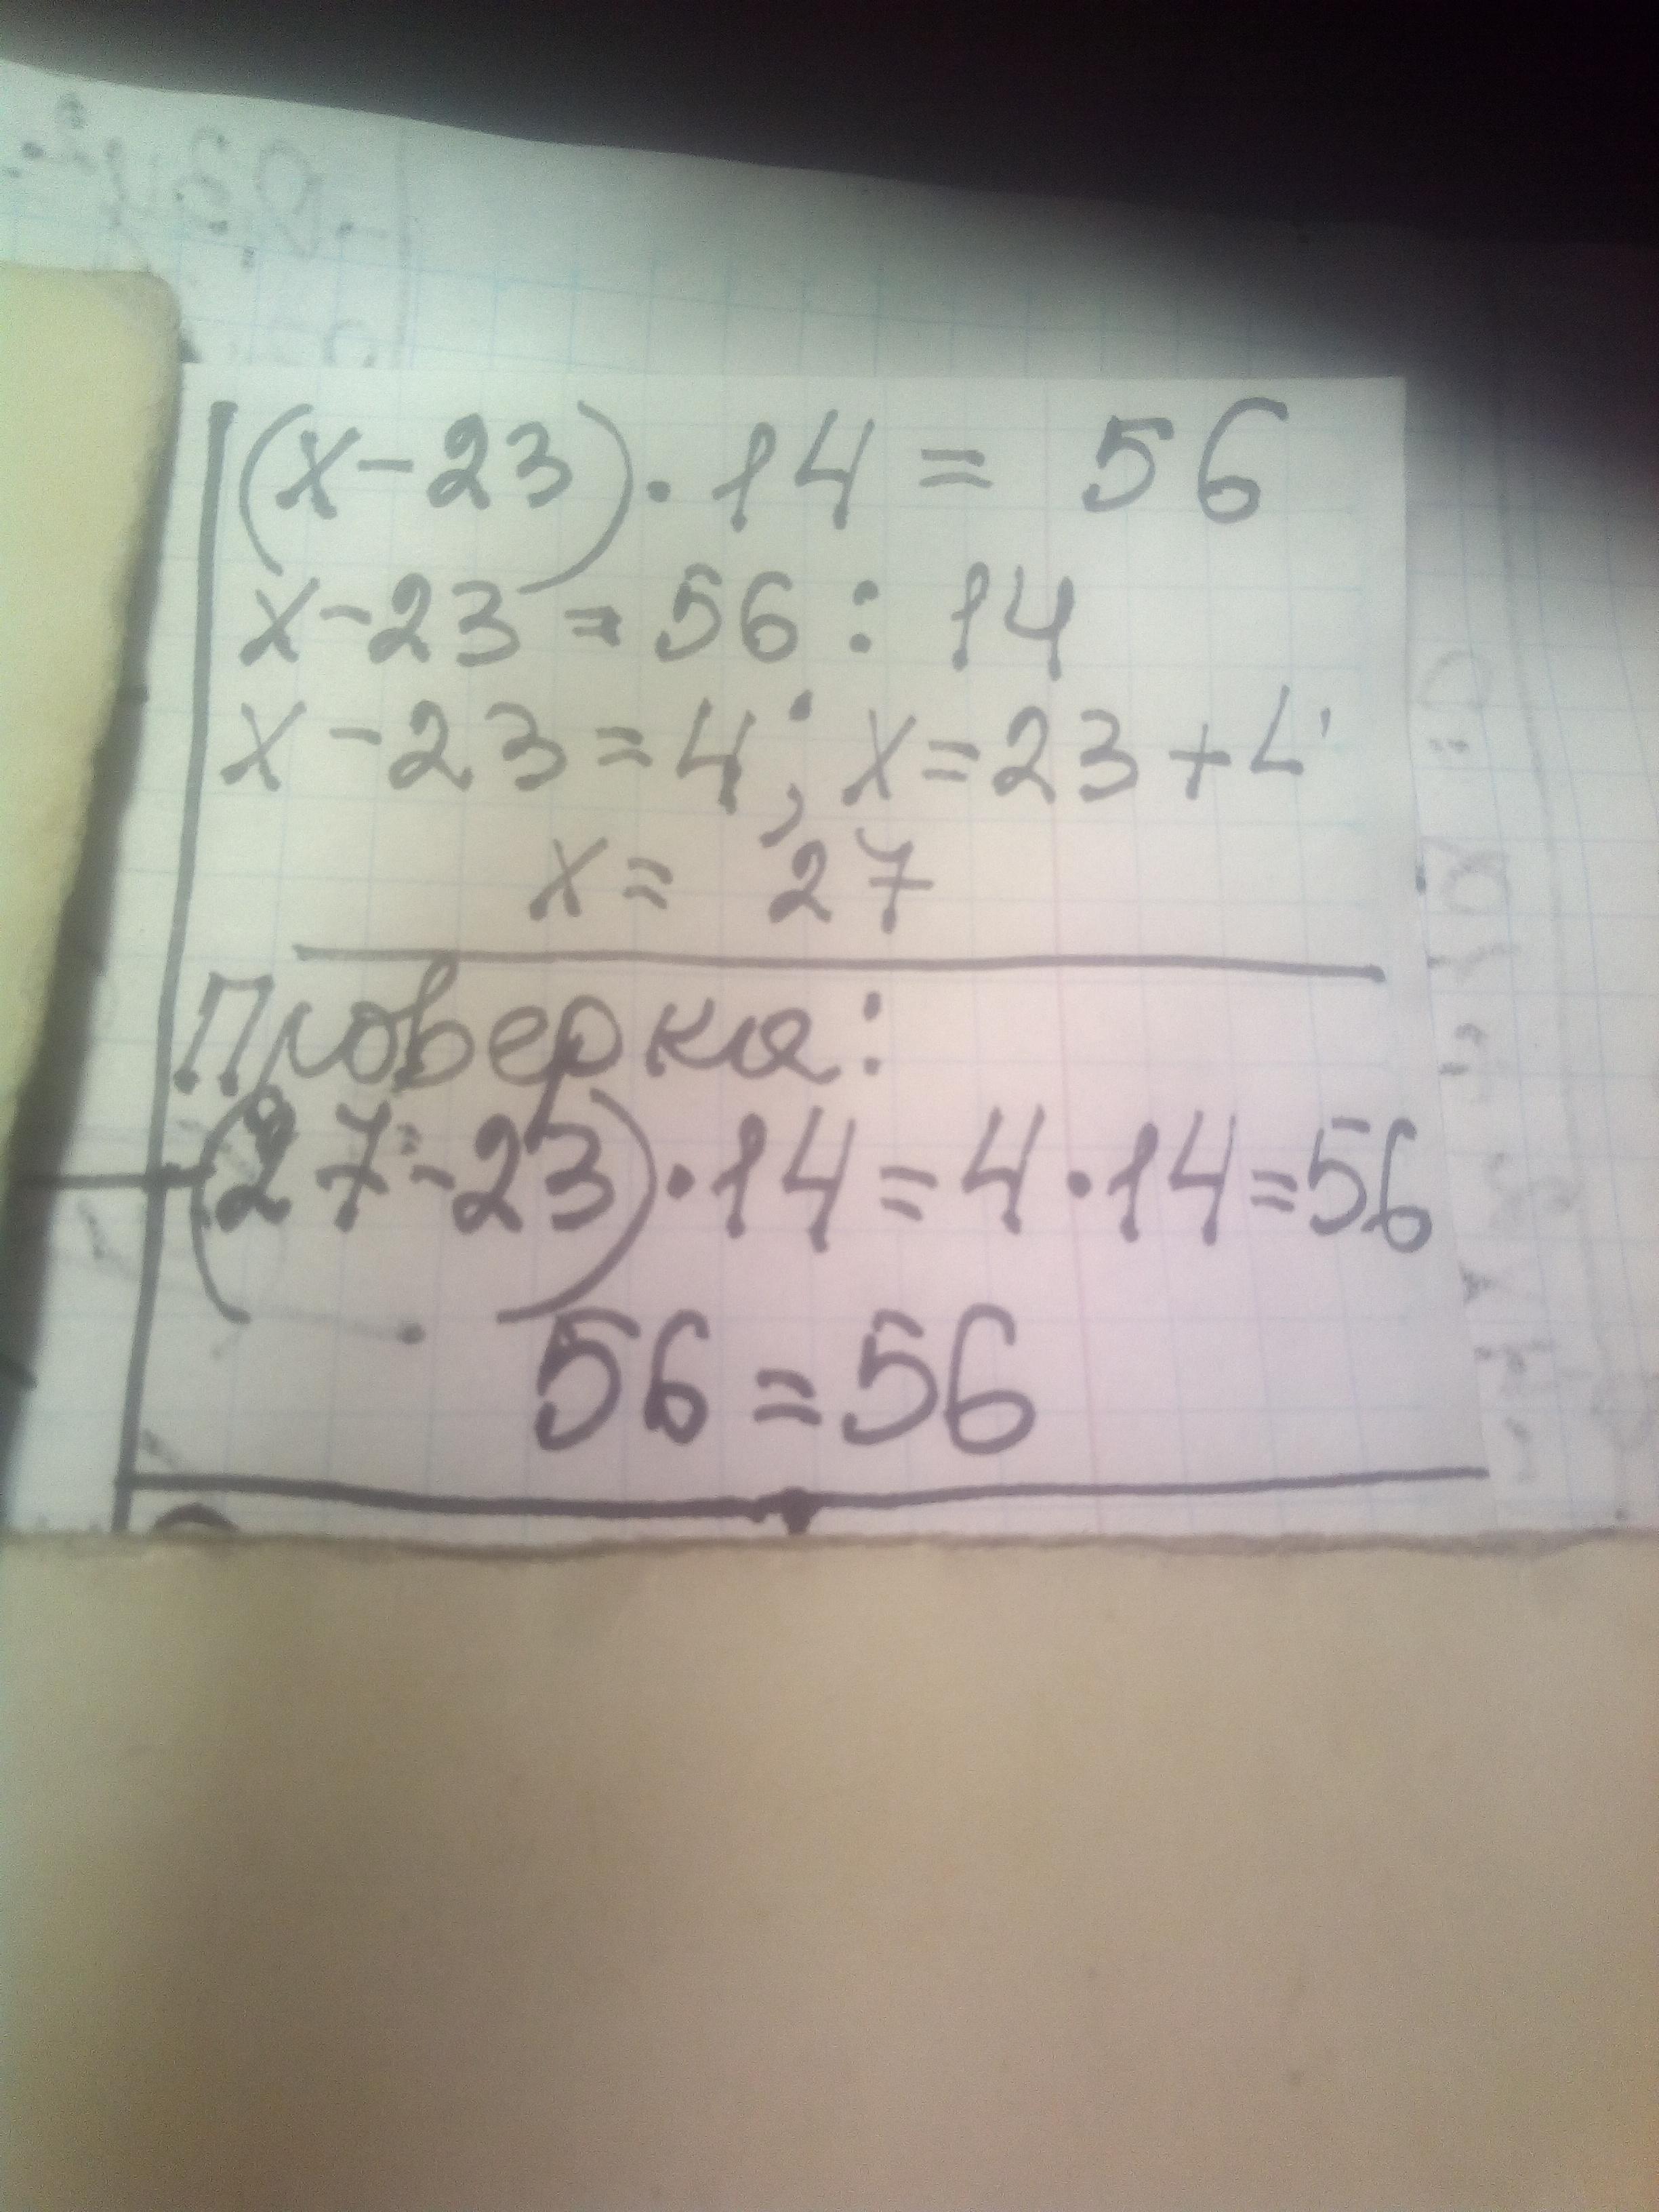 (x-23)·14 = 56
x-23 = 56 : 14
x-23=4; x=23+4
x= 27
Проверка:
(27-23)·14=4·14=56
56=56